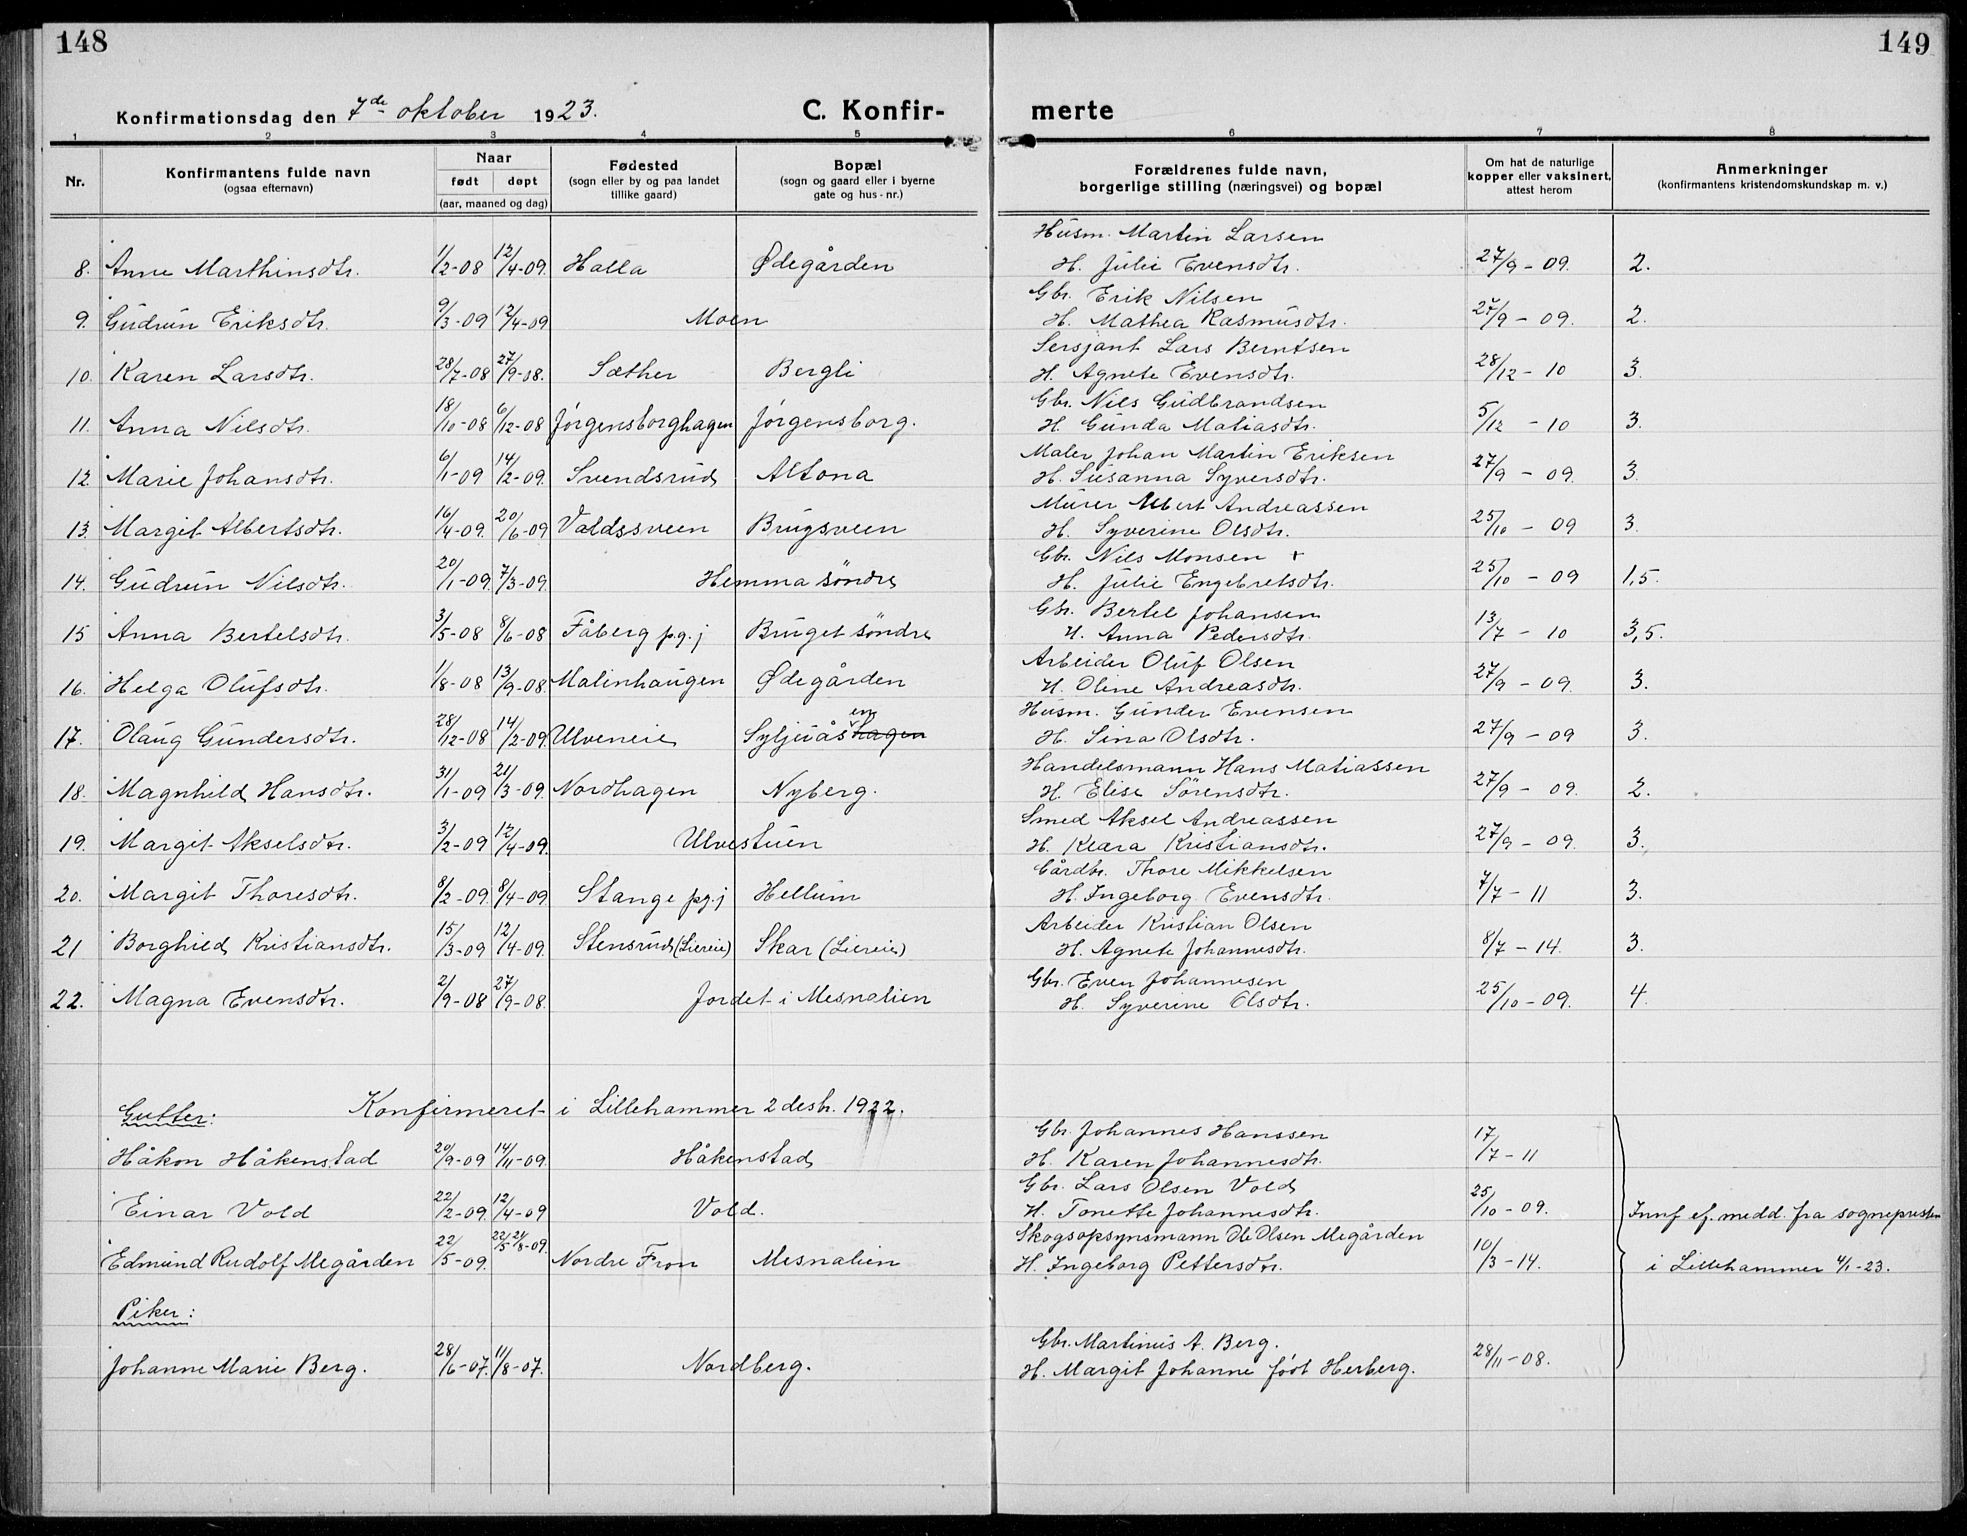 148
149
Konfirmationsdag den 7de oktober 1923. C. Konfir- merte
1 2 3 4 5 6 7 8
Nr. Konfirmantens fulde navn (ogsaa efternavn) Naar født døpt (aar, maaned og dag) Fødested (sogn eller by og paa landet tillike gaard) Bopæl (sogn og gaard eller i byerne gate og hus-nr.) Forældrenes fulde navn, borgerlige stilling (næringsvei) og bopæl Om hat de naturlige kopper eller vaksinert, attest herom Anmerkninger (konfirmantens kristendomskundskap m. v.)
Husm. Martin Larsen
8. Anne Marthinsdtr. 1/2-08 12/4-09. Halla Ødegården H. Julie Evensdtr. 27/9-09. 2.
Gbr. Erik Nilsen
9. Gudrun Eriksdtr. 9/3-09 12/4-09 Moen H. Mathea Rasmusdtr. 27/9-09. 2.
Sersjant Lars Berntsen
10. Karen Larsdtr. 28/7-08 27/9-08. Sæther Bergli H. Agnete Evensdtr. 28/12-10 3.
Gbr. Nils Gudbrandsen
11. Anna Nilsdtr. 18/10-08 6/12-08 Jørgensborghagen Jørgensborg. H. Gunda Matiasdtr. 5/12-10 3.
Maler Johan Martin Eriksen
12. Marie Johansdtr. 6/1-09 14/2-09. Svendsrud Altona H. Susanna Syversdtr. 27/9-09. 3.
Murer Albert Andreassen
13. Margit Albertsdtr. 16/4-09. 20/6-09 Valdssveen Brugsveen H. Syverine Olsdtr. 25/10-09 3.
Gbr. Nils Monsen +
14. Gudrun Nilsdtr. 20/1-09. 7/3-09. Hemma söndre H. Julie Engebretsdtr. 25/10-09 1,5.
Gbr. Bertel Johansen
15 Anna Bertelsdtr. 3/5-08 8/6-08 Fåberg p.g.j Bruget söndre H. Anna Pedersdtr. 13/7-10 3,5.
Arbeider Oluf Olsen
16. Helga Olufsdtr. 1/8-08 13/9-08. Malinhaugen Ødegården H. Oline Andreasdtr. 27/9-09. 3.
Husm. Gunder Evensen
17. Olaug Gundersdtr. 28/12-08 14/2-09. Ulveneie Syljuåshagen en H. Sina Olsdtr. 27/9-09 3.
Handelsmann Hans Matiassen
18. Magnhild Hansdtr. 31/1-09 21/3-09. Nordhagen Nyberg. H. Elise Sörensdtr. 27/9-09. 2.
Smed Aksel Andreassen
19. Margit Akselsdtr. 3/2-09 12/4-09. Ulvestuen H. Klara Kristiansdtr. 27/9-09. 3.
Gårdbr. Thore Mikkelsen
20. Margit Thoresdtr. 8/2-09. 8/4-09 Stange pg.j Hellum H. Ingeborg Evensdtr. 7/7-11 3.
Arbeider Kristian Olsen
21 Borghild Kristiansdtr. 15/3-09 12/4-09. Stensrud (Liereie) Skar (Liereie) H. Agnete Johannesdtr. 8/7-14. 3.
Gbr. Even Johannesen
22. Magna Evensdtr. 2/9-08 27/9-08. Jordet i Mesnalien H. Syverine Olsdtr. 25/10-09. 4.
Gutter: Konfirmeret i Lillehammer 2 desbr. 1922.
Gbr. Johannes Hanssen
Håkon Håkenstad 20/9-09 14/11-09. Håkenstad H. Karen Johannesdtr. 17/7-11
Gbr. Lars Olsen Vold
Einar Vold 22/2-09. 12/4-09 Vold. H. Tonette Johannesdtr. 25/10-09. Innf ef. medd. fra sognepresten
Skogsopsynsmann Ole Olsen Megården
Edmund Rudolf Megården 22/5-09. 22/5 21/8-09. Nordre Fron Mesnalien H. Ingeborg Pettersdtr. 10/3-14. i Lillehammer 4/1-23.
Piker:
Gbr. Martinus A. Berg.
Johanne Marie Berg. 28/6-07. 11/8-07. Nordberg. H. Margit Johanne født Herberg. 28/11-08.